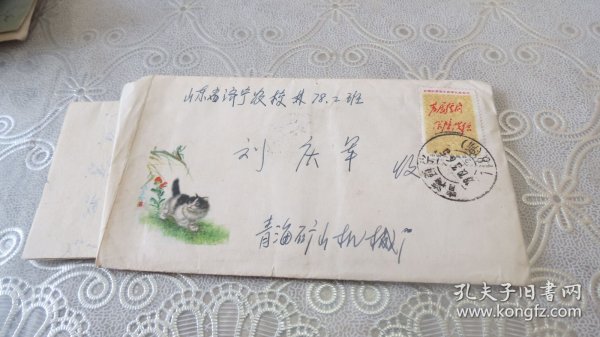 山东省济宁农校林78.2班
刘庆军 收
青海矿山机械厂
孔夫子旧书网
www.kongfz.com